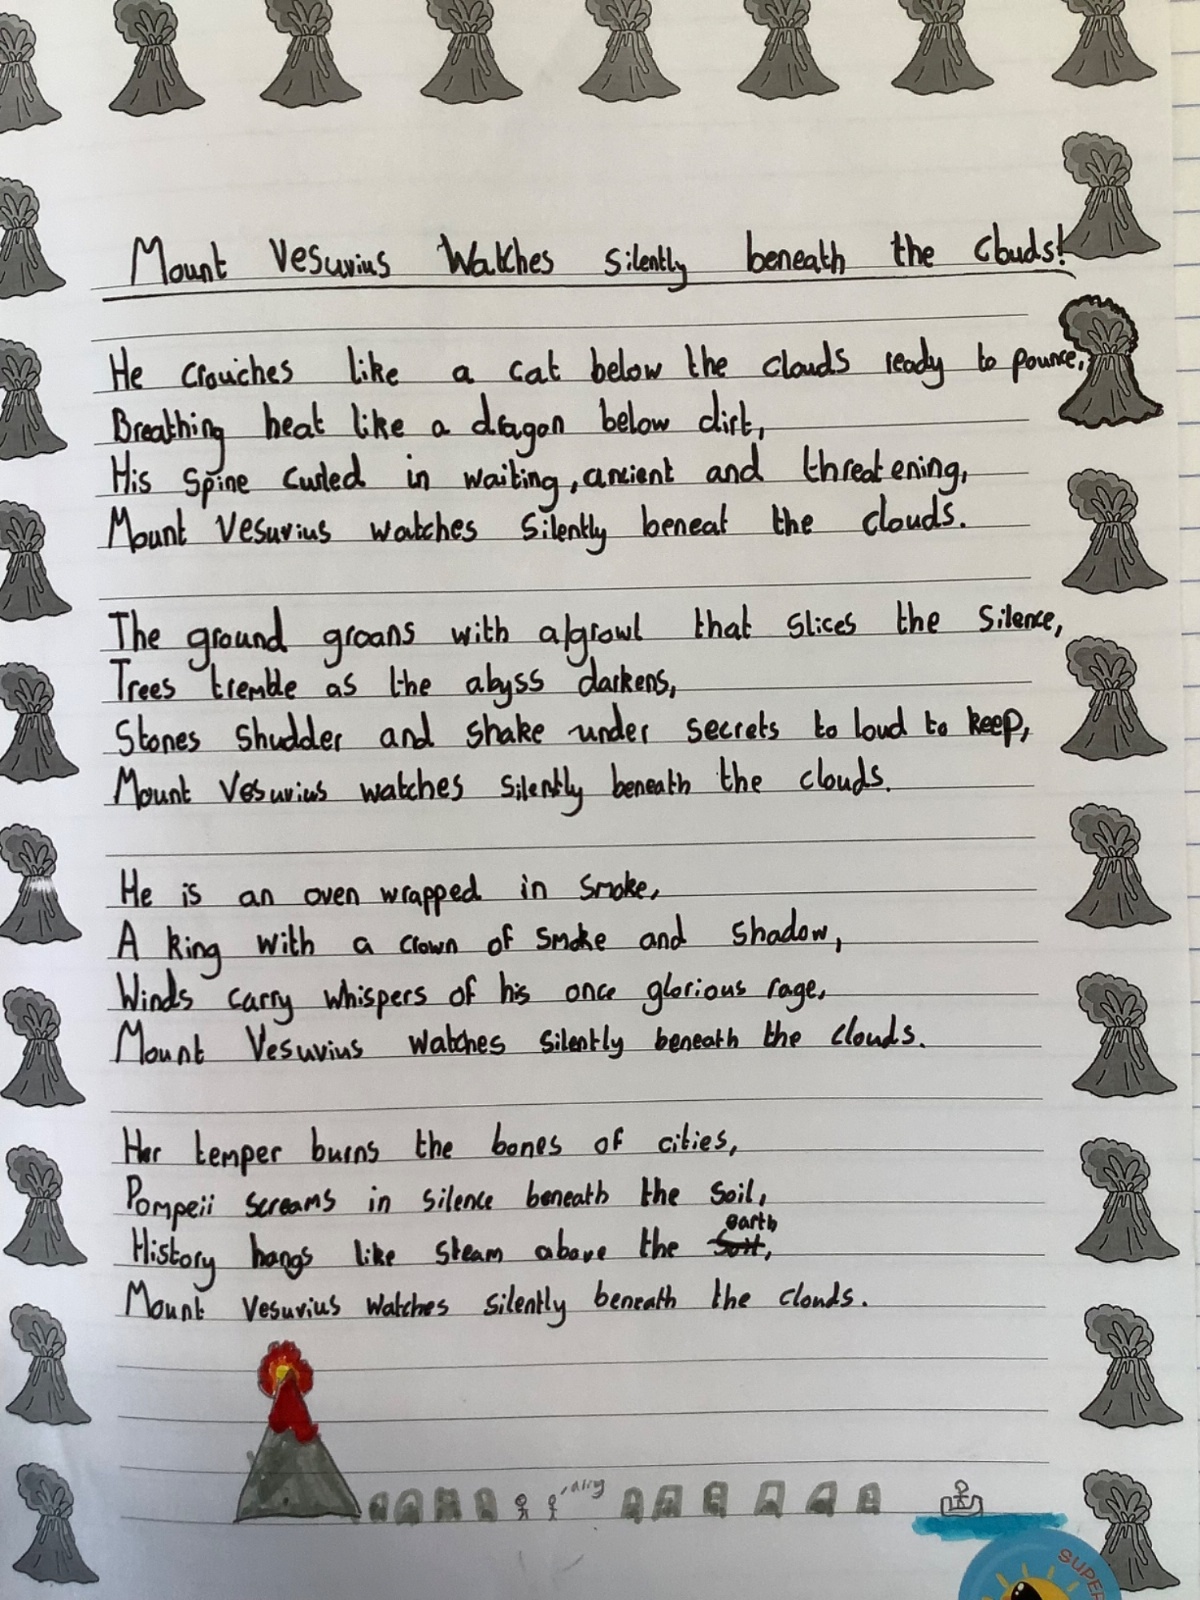 Mount Vesuvius Watches Silently beneath the clouds!
He crouches like a cat below the clouds ready to pounce,
Breathing heat like a dragon below dirt,
His spine curled in waiting, ancient and threatening,
Mount Vesuvius watches silently beneat the clouds.
The ground groans with a growl that slices the silence,
Trees tremble as the abyss darkens,
Stones shudder and shake under secrets to loud to keep,
Mount Vesuvius watches silently beneath the clouds.
He is an oven wrapped in smoke,
A king with a crown of smoke and shadow,
Winds carry whispers of his once glorious rage,
Mount Vesuvius watches silently beneath the clouds.
Her temper burns the bones of cities,
Pompeii screams in silence beneath the soil,
History hangs like steam above the earth,
Mount Vesuvius watches silently beneath the clouds.
SUPER